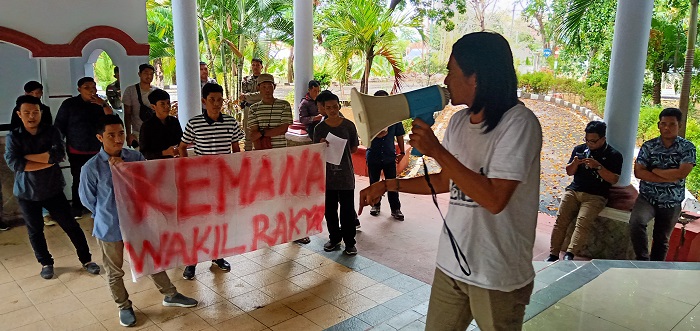 KEMANA
WAKIL RAKYAT